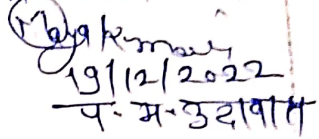 Maya Kumari
19/12/2022
प. म. उदावास